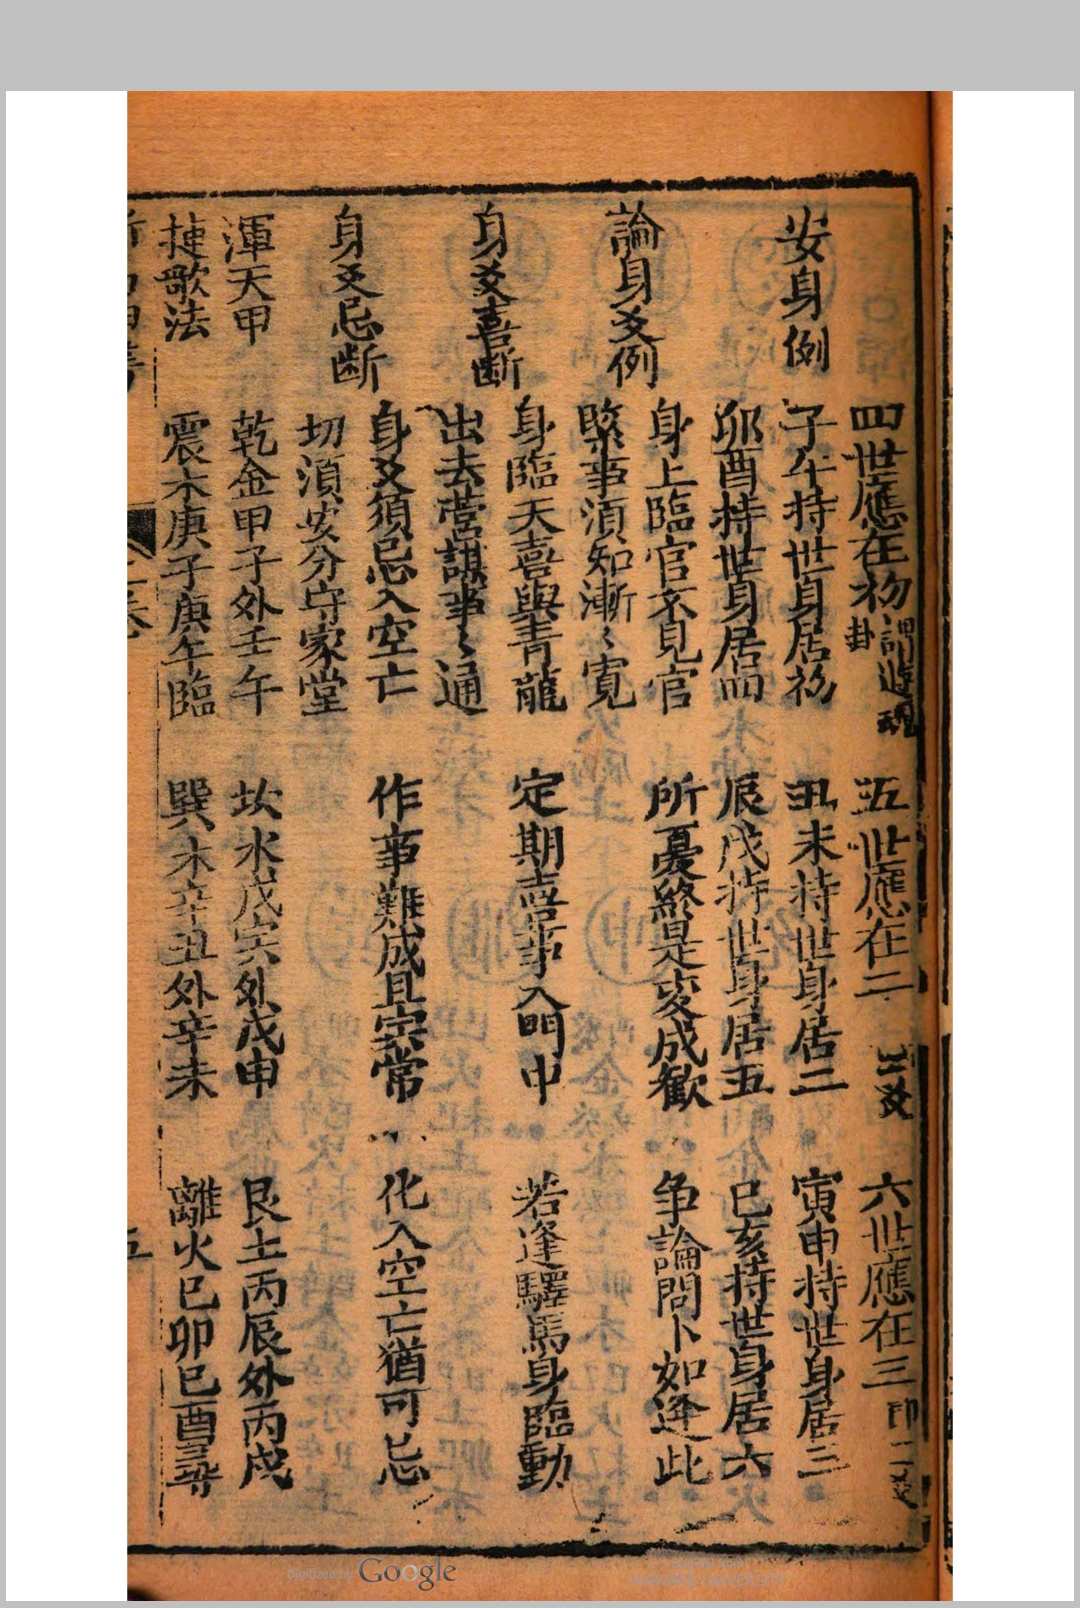 四世應在初謂遊魂卦　五世應在二三爻　六世應在三即二爻
安身例　子午持世身居初　丑未持世身居二　寅申持世身居三
卯酉持世身居四　辰戌持世身居五　巳亥持世身居六
論身爻例　身上臨官不見官　所憂終是变成歡　争論問卜如逢此
緊事須知漸々寛
身爻喜断　身臨天喜與青龍　定期喜事入門中　若逢驛馬身臨動
出去营謀事々通
身爻忌断　身爻須忌入空亡　作事難成且守常　化入空亡猶可忌
切須安分守家堂
渾天甲　乾金甲子外壬午　坎水戊寅外戊申　艮土丙辰外丙戌
捷歌法　震木庚子庚午臨　巽木辛丑外辛未　離火己卯己酉尋
五
Digitized by Google